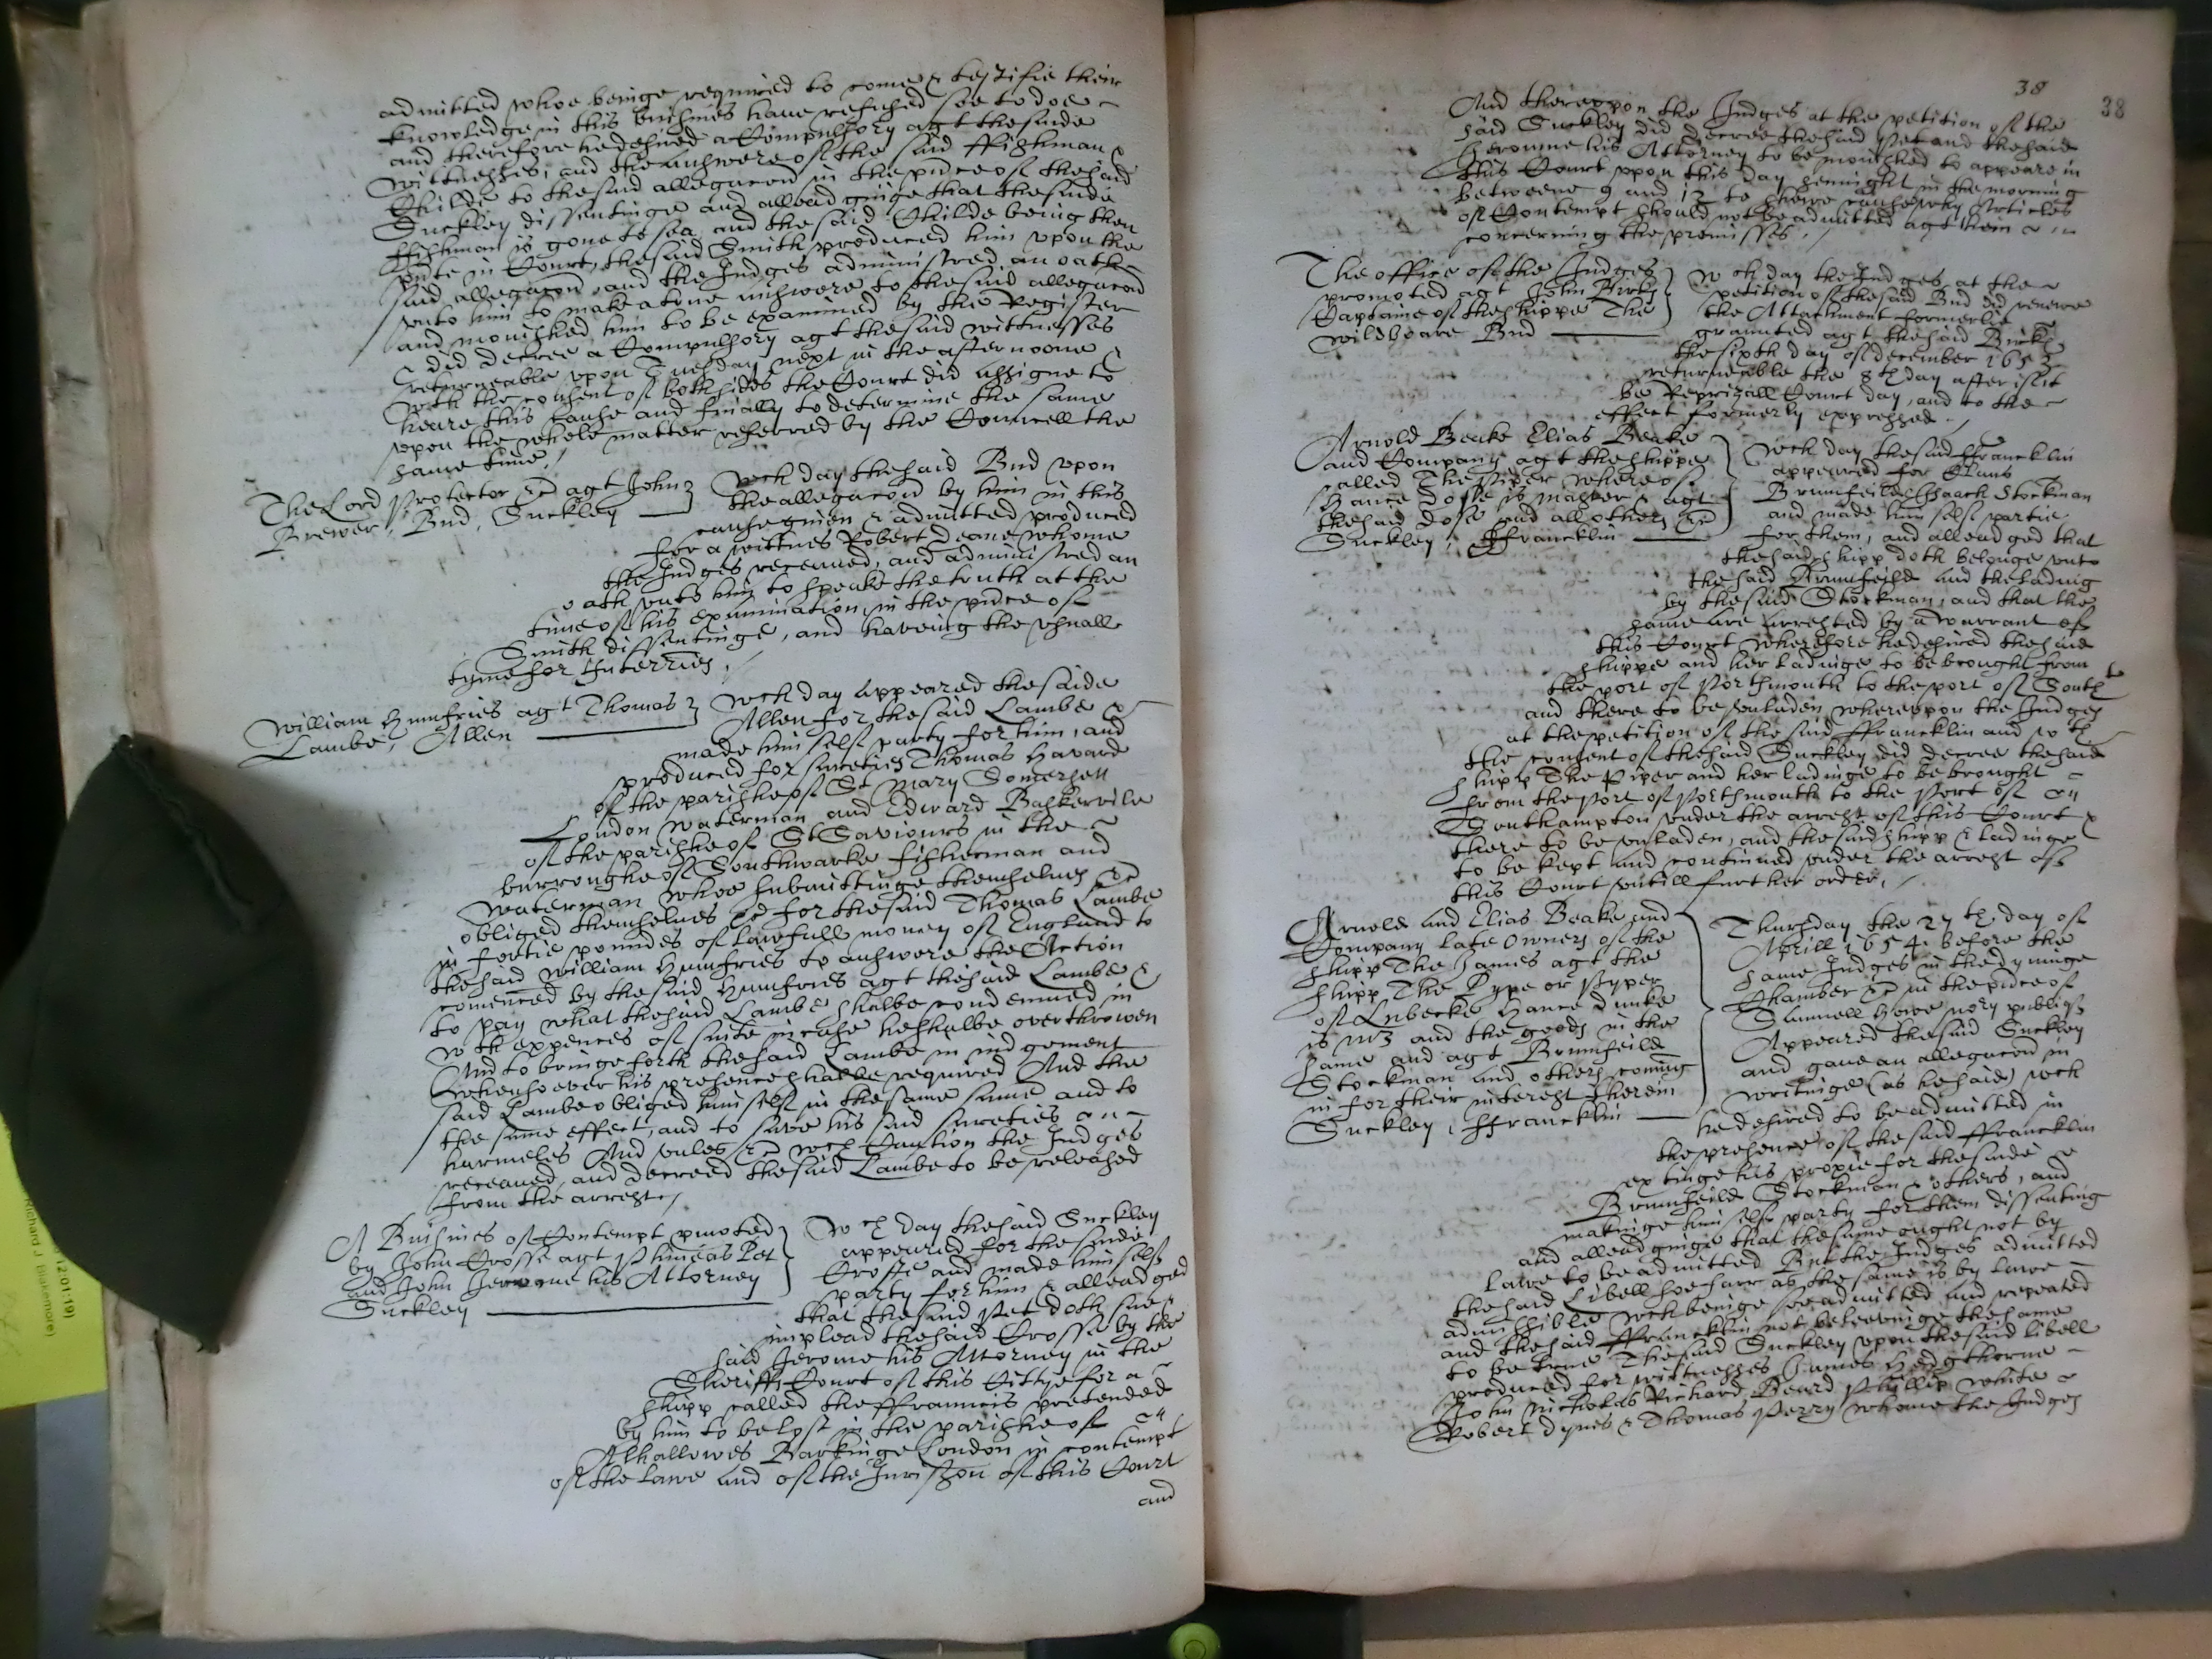 admitted whoe beinge required to come & testifie their
knowledge in this busines have refused soe to doe
and therefore he desired a Compulsory agt the saide
wittnesses, and the answere of the said ffishman &
Childe to the said allegacon in the pnce of the said
Suckley dissentinge and alleadginge that the saide
ffishman is gone to sea, and the said Childe being then
pnte in Court, the said Smith produced him upon the
said allegacon, and the Judges administred an oath
unto him to make a true answere to the said allegacon
and monished him to be examined by the Register
& did decree a Compulsory agt the said wittnesses
returneable upon Tuesday next in the afternoone &
with the consent of both sides the Court did assigne to
heare this cause and finally to determine the same
upon the whole matter referred by the Councell the
same time /
The Lord Protector &c agt John
Brewer, Bud, Suckley
wch day the said Bud upon
the allegacon by him in this
cause given & admitted produced
for a wittnes Robert Deane whome
the Judges received, and administred an
oath unto him to speake the truth at the
time of his examination, in the pnce of
Smith dissentinge, and haveing the usuall
tyme for Interries /
William Humfries agt Thomas
Lambe, Allen
wch day appeared the saide
Allen for the said Lambe &
made him self party for him, and
produced for sureties Thomas Havard
of the parishe of St Mary Somersett
London waterman and Edward Baskervile
of the parishe of St Saviours in the
burroughe of Southwarke fisherman and
waterman whoe submittinge themselves &c
obliged themselves &c for the said Thomas Lambe
in fortie poundes of lawfull money of England to
the said William Humfries to answere the Action
comenced by the said Humfries agt the said Lambe &
to pay what the said Lambe shalbe condemned in
wth expences of suite in case he shalbe overthrowen
And to bringe forth the said Lambe in iudgement
whensoever his presence shalbe required And the
said Lambe obliged himself in the same summe and to
the same effect, and to save his said sureties
harmeles And unles &c wch Caution the Judges
received, and decreed the said Lambe to be released
from the arrest /
A Busines of Contempt pmoted
by John Crosse agt Phineas Pet
and John Jerome his Attorney
Suckley
wch day the said Suckley
appeared for the saide
Crosse and made himself
party for him & alleadged
that the said Pet doth sue &
implead the said Crosse by the
said Jerome his Attorney in the
Sheriffs Court of this Cittye for a
shipp called the ffrancis pretended
by him to be lost in the parishe of
Alhallowes Barkinge London in contempt
of the lawe and of the Jurisdicon of this Court
and
38
38
And thereupon the Judges at the petition of the
said Suckley did decree the said Pet and the said
Jerome his Attorney to be monished to appeare in
this Court upon this day sennight in the morning
betweene 9 and 12 to shewe cause why Articles
of Contempt should not be admitted agt them
concerning the premisses /
The office of the Judges
promoted agt John
Captaine of the shippe The
Wildboare Bud
wch day the Judges at the
petition of the said Bud did renewe
the Attachment formerlie
graunted agt the said
the sixth day of December 1653
returneable the 8th day after if it
be Reprizall Court day, and to the
effect formerly expressed /
Arnold Beake Elias Beake
and Company agt the shippe
called The Piper whereof
Hance Dose is master & agt
the said Dose and all others &c
Suckley, ffrancklin
wch day the said ffrancklin
appeared for Claus
Brumfeild & Isaack Stockman
and made him self partie
for them, and alleadged that
the said shipp doth belonge unto
the said Brumfeild and the lading
by the said Stockman, and that the
same are arrested by a warrant of
this Court wherefore he desired the said
shippe and her ladinge to be brought from
the port of Portsmouth to the port of Southton
and there to be unladen, whereupon the Judges
at the petition of the said ffrancklin and wth
the consent of the said Suckley did decree the said
shipp The Piper and her ladinge to be brought
from the Port of Portsmouth to the Port of
Southampton under the arrest of this Court &
there to be unladen, and the said shipp & ladinge
to be kept and continued under the arrest of
this Court untill further order, /
Arnold and Elias Beake and
Company late Owners of the
shipp The James agt the
shipp The Pype or Pyper
of Lubecke Hance Dunke
is mr and the goods in the
same and agt Brumfeild
Stockman and others coming
in for their interest therein
Suckley, ffrancklin
Thursday the 27th day of
Aprill 1654. before the
same Judges in the dyninge
Chamber &c in the pnce of
Samuell Howe nory publiqe
Appeared the said Suckley
and gave an allegacon in
writinge (as he said) wch
he desired to be admitted in
the presence of the said ffrancklin
extinge his proxie for the saide
Brumfeild Stockman & others, and
makinge himself party for them dissenting
and alleadginge that the same ought not by
lawe to be admitted But the Judges admitted
the said Libell soe farr as the same is by lawe
admissible wch beinge soe admitted and repeated
and the said ffrancklin not beleevinge the same
to be true The said Suckley upon the said libell
produced for wittnesses James Hedgthorne
John Nicholas Richard Beard Phillip White
Robert Dynes & Thomas Perry whome the Judges